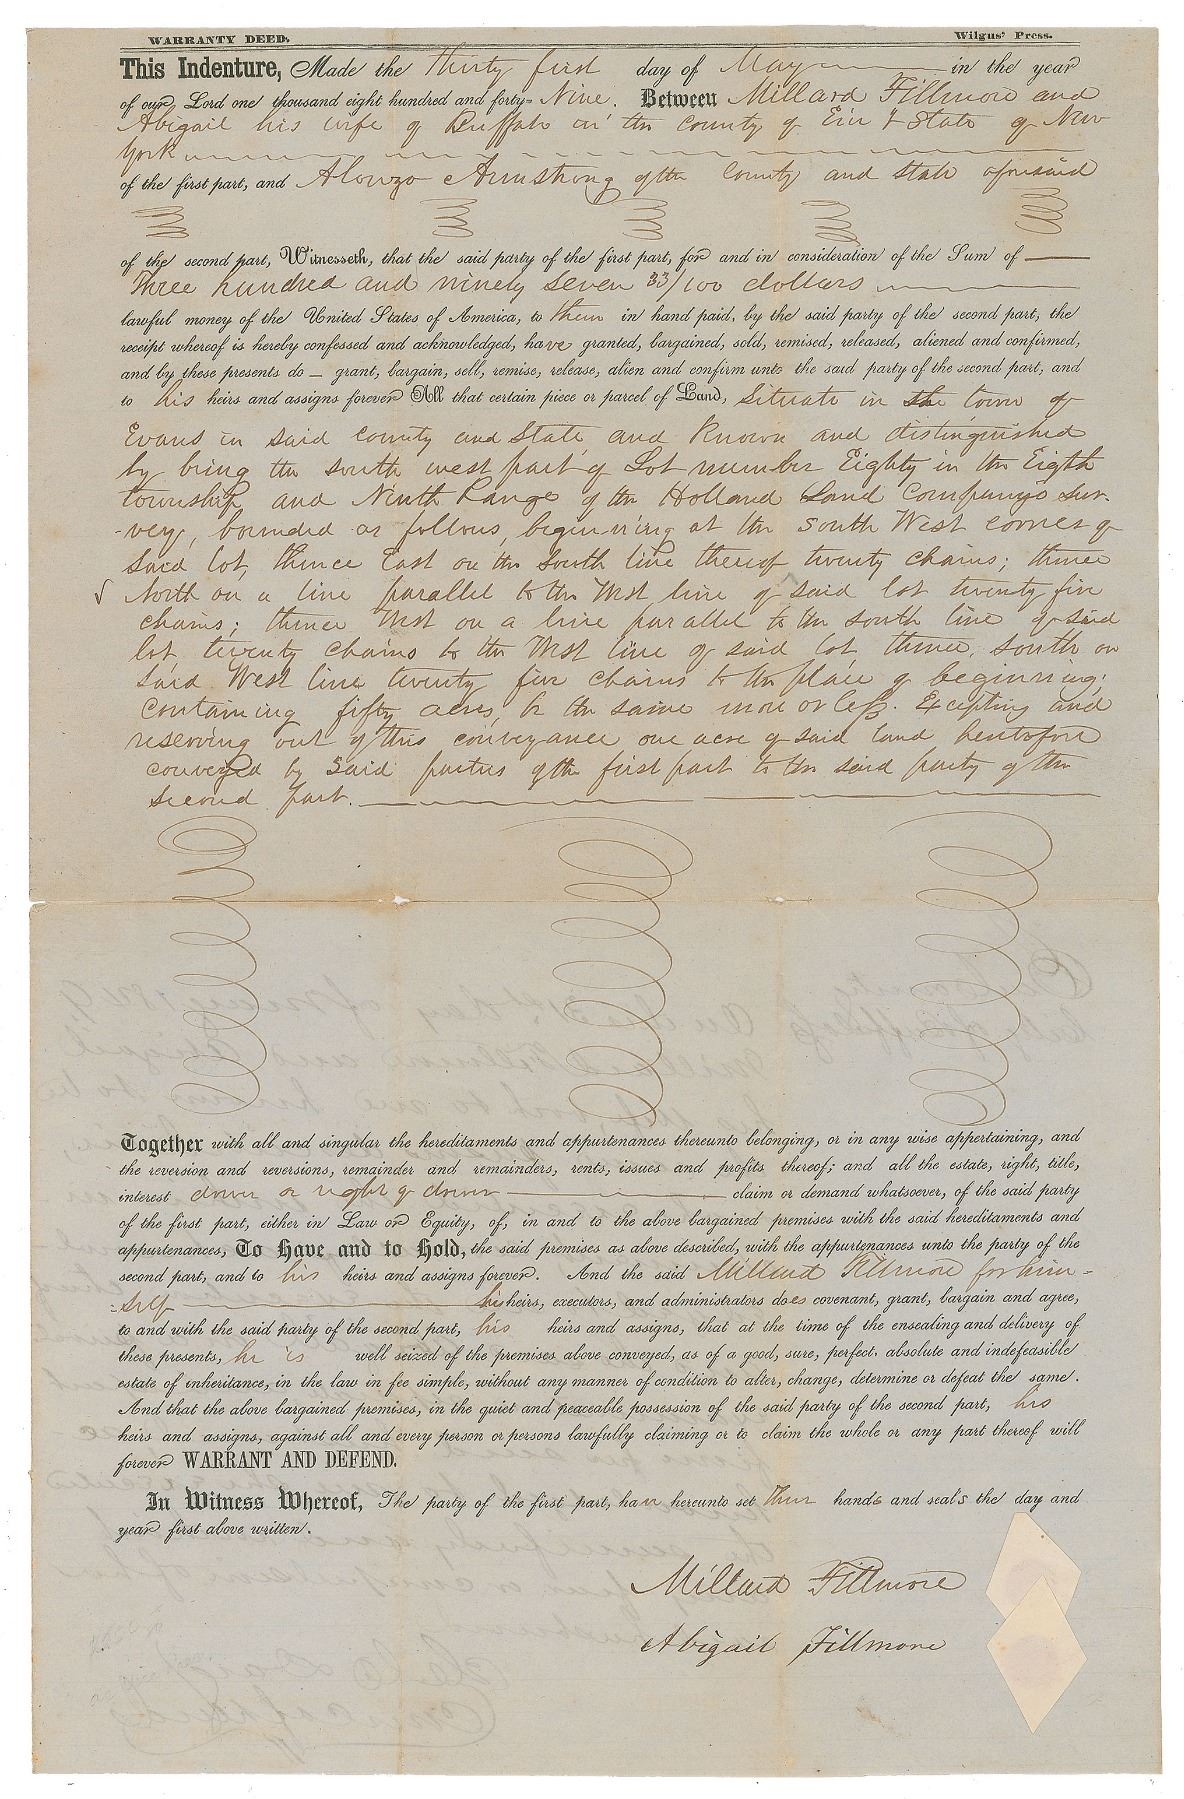 WARRANTY DEED. Wilgus' Press.
This Indenture, Made the Thirty first day of May in the year
of our Lord one thousand eight hundred and forty-Nine. Between Millard Fillmore and
Abigail his wife of Buffalo in the County of Erie & State of New
York
of the first part, and Alonzo Armstrong of the County and State aforesaid
of the second part, Witnesseth, that the said party of the first part, for and in consideration of the Sum of
Three hundred and ninety seven 33/100 dollars
lawful money of the United States of America, to them in hand paid, by the said party of the second part, the
receipt whereof is hereby confessed and acknowledged, have granted, bargained, sold, remised, released, aliened and confirmed,
and by these presents do – grant, bargain, sell, remise, release, alien and confirm unto the said party of the second part, and
to his heirs and assigns forever All that certain piece or parcel of Land, situate in the town of
Evans in said County and State and known and distinguished
by being the south west part of Lot number Eighty in the Eigth
township and Ninth Range of the Holland Land Company's Sur-
-vey, bounded as follows, beginning at the South West corner of
said lot, thence East on the South line thereof twenty chains; thence
North on a line parallel to the West line of said lot twenty five
chains; thence West on a line parallel to the south line of said
lot, twenty chains to the West line of said lot, thence, south on
said West line twenty five chains to the place of beginning;
containing fifty acres, be the same more or less. Excepting and
reserving out of this conveyance one acre of said land heretofore
conveyed by said parties of the first part to the said party of the
second part.
Together with all and singular the hereditaments and appurtenances thereunto belonging, or in any wise appertaining, and
the reversion and reversions, remainder and remainders, rents, issues and profits thereof; and all the estate, right, title,
interest dower or right of dower claim or demand whatsoever, of the said party
of the first part, either in Law or Equity, of, in and to the above bargained premises with the said hereditaments and
appurtenances, To Have and to Hold, the said premises as above described, with the appurtenances unto the party of the
second part, and to his heirs and assigns forever. And the said Millard Fillmore for him-
-self his heirs, executors, and administrators does covenant, grant, bargain and agree,
to and with the said party of the second part, his heirs and assigns, that at the time of the ensealing and delivery of
these presents, he is well seized of the premises above conveyed, as of a good, sure, perfect, absolute and indefeasible
estate of inheritance, in the law in fee simple, without any manner of condition to alter, change, determine or defeat the same.
And that the above bargained premises, in the quiet and peaceable possession of the said party of the second part, his
heirs and assigns, against all and every person or persons lawfully claiming or to claim the whole or any part thereof will
forever WARRANT AND DEFEND.
In Witness Whereof, The party of the first part, have hereunto set their hands and seals the day and
year first above written.
Millard Fillmore
Abigail Fillmore